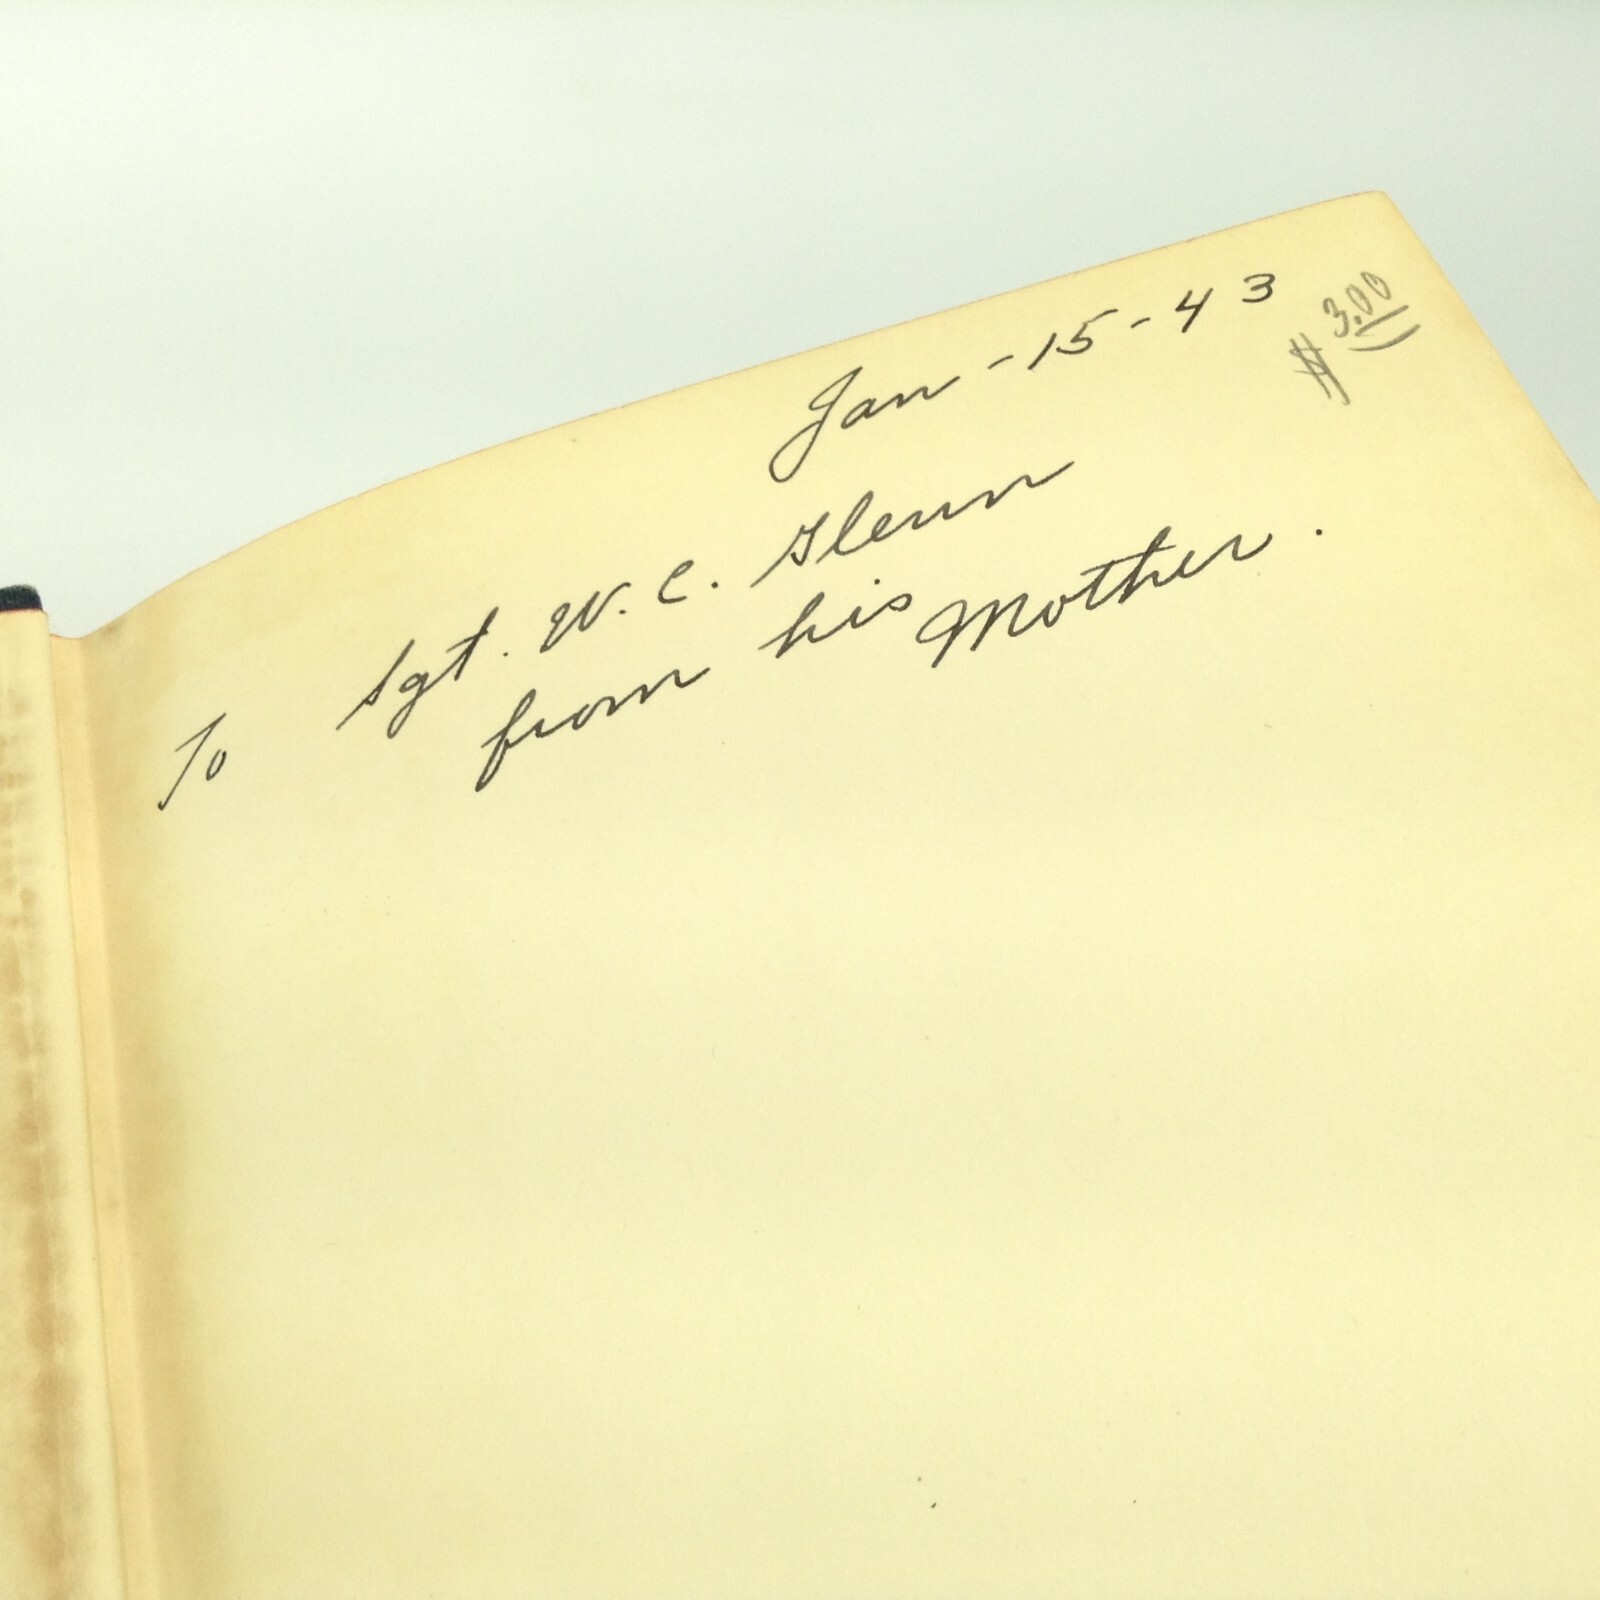 Jan - 15 - 43
$3.00
To Sgt. W. C. Glenn
from his Mother.